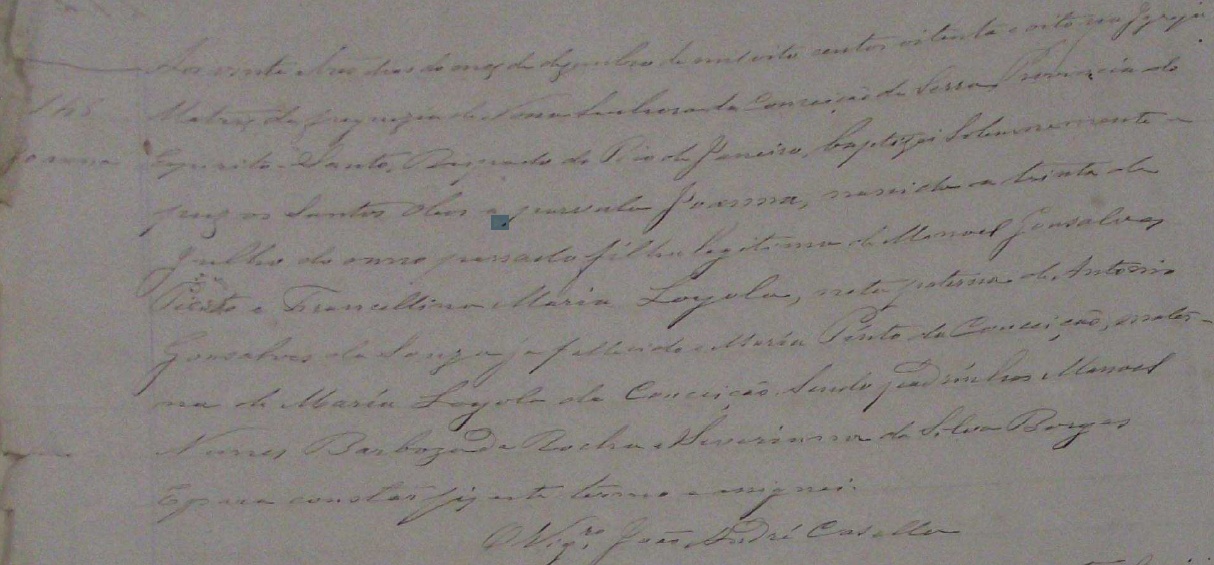 Aos vinte e tres dias do mez de dezembro de mil oito centos oitenta e oito na Igreja
148 Matriz da freguezia de Nossa Senhora da Conceição da Serra, Provincia do
Joanna Espirito-Santo, Bispado do Rio de Janeiro, baptizei Solemnemente e
puz os Santos Oleos a parvula Joanna, nascida a trinta de
Julho do anno passado filha legitima de Manoel Gonsalves
Pinto e Francellina Maria Loyola, neta paterna de Antonio
Gonsalves de Souza ja fallecido e Maria Pinto da Conceição, mater-
na de Maria Loyola da Conceição. Sendo padrinhos Manoel
Nunes Barboza da Rocha e Severianna da Silva Borges
E para constar fiz este termo e assignei.
O Vigr.º João André Casella